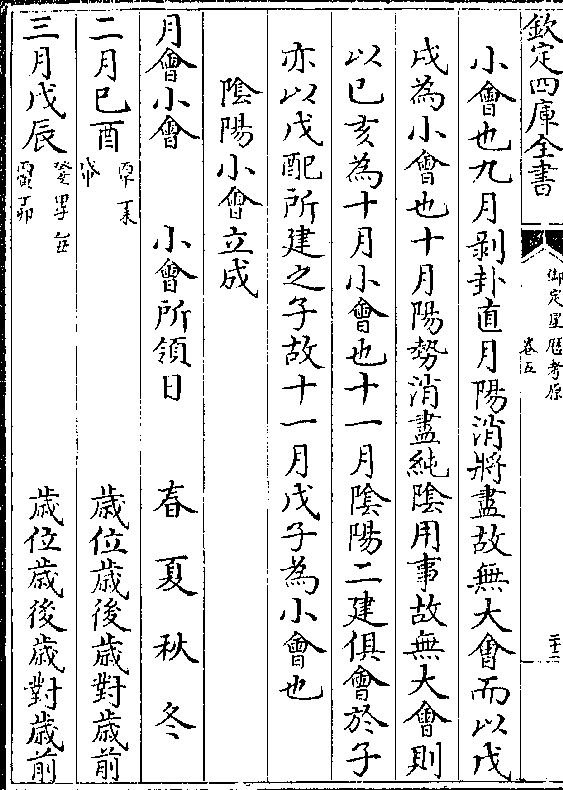 欽定四庫全書
御定星歴考原
卷五
小會也九月剥卦直月陽消將盡故無大會而以戊
戌為小會也十月陽勢消盡純陰用事故無大會則
以已亥為十月小會也十一月陰陽二建俱會於子
亦以戊配所建之子故十一月戊子為小會也
陰陽小會立成
月會小會 小會所領日 春夏秋冬
二月已酉 歲位歲後歲對歲前
三月戊辰 歲位歲後歲對歲前